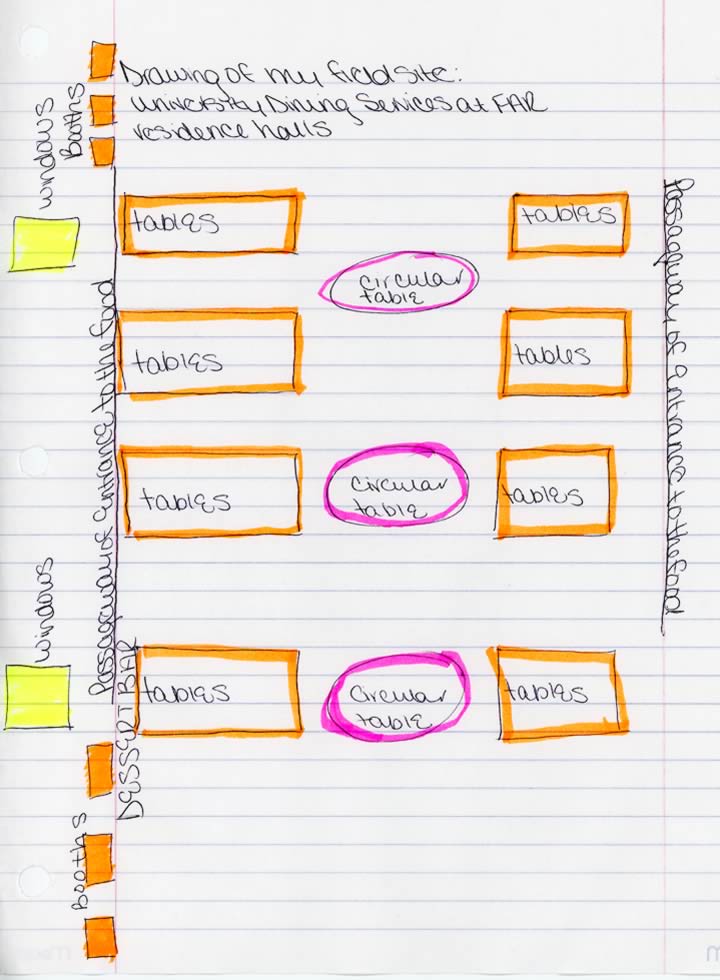 Drawing of my field site:
University Dining Services at FAR
residence halls
windows
Booths
tables
tables
circular
table
Passageway of entrance to the food
Passageway of entrance to the food
tables
tables
tables
circular
table
tables
windows
tables
circular
table
tables
DESSERT BAR
Booths